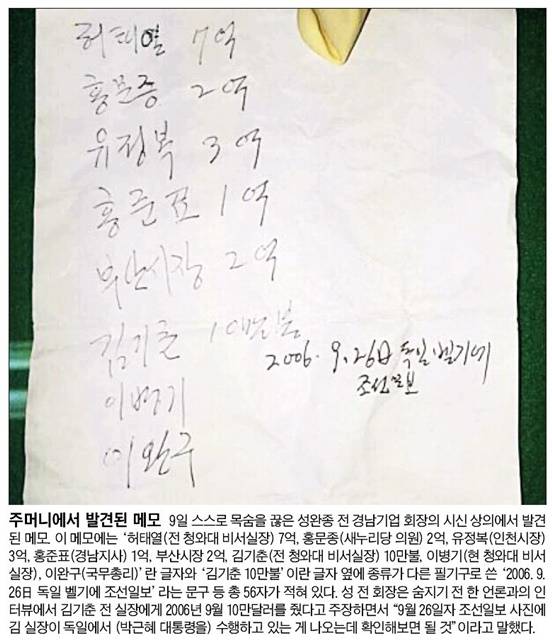 허태열 7억
홍문종 2억
유정복 3억
홍준표 1억
부산시장 2억
김기춘 10만불
2006. 9.26日 독일 벨기에
조선일보
이병기
이완구
주머니에서 발견된 메모 9일 스스로 목숨을 끊은 성완종 전 경남기업 회장의 시신 상의에서 발견
된 메모. 이 메모에는 ‘허태열(전 청와대 비서실장) 7억, 홍문종(새누리당 의원) 2억, 유정복(인천시장)
3억, 홍준표(경남지사) 1억, 부산시장 2억, 김기춘(전 청와대 비서실장) 10만불, 이병기(현 청와대 비서
실장), 이완구(국무총리)’ 란 글자와 ‘김기춘 10만불’ 이란 글자 옆에 종류가 다른 필기구로 쓴 ‘2006. 9.
26日 독일 벨기에 조선일보’ 라는 문구 등 총 56자가 적혀 있다. 성 전 회장은 숨지기 전 한 언론과의 인
터뷰에서 김기춘 전 실장에게 2006년 9월 10만달러를 줬다고 주장하면서 “9월 26일자 조선일보 사진에
김 실장이 독일에서 (박근혜 대통령을) 수행하고 있는 게 나오는데 확인해보면 될 것”이라고 말했다.